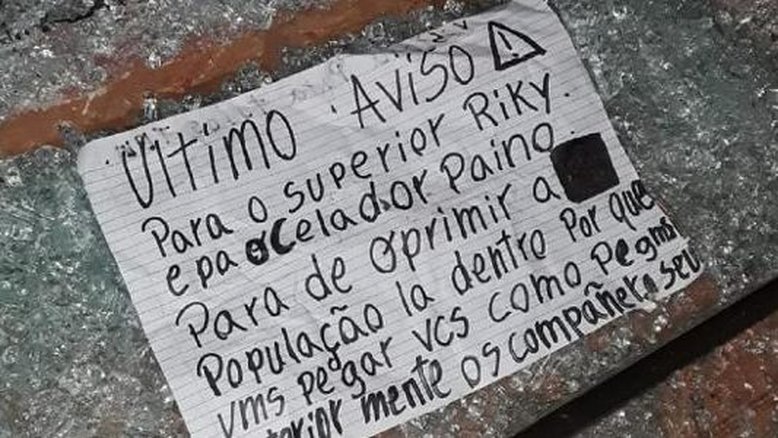 ULTIMO AVISO
Para o superior Riky.
e pa o celador Paino.
Para de oprimir a
População la dentro Por que
vms pegar vcs como pegms
mente os compañero seu